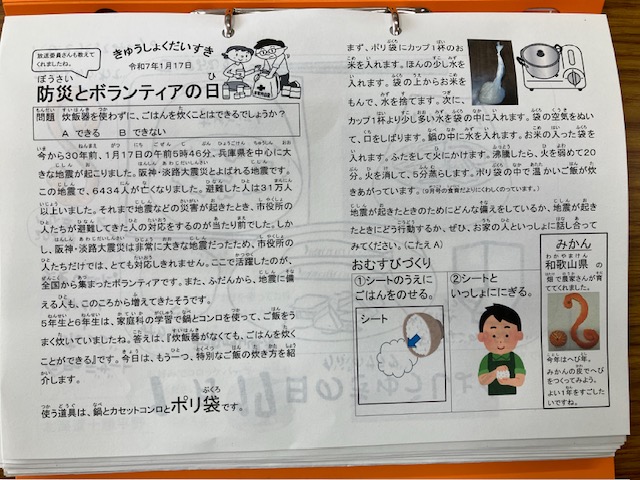 放送委員さんも教えてくれましたね。
きゅうしょくだいすき
令和7年1月17日
防災とボランティアの日
問題 炊飯器を使わずに、ごはんを炊くことはできるでしょうか?
A できる B できない
今から30年前、1月17日の午前5時46分。兵庫県を中心に大
きな地震が起こりました。阪神・淡路大震災とよばれる地震です。
この地震で、6434人が亡くなりました。避難した人は31万人
以上いました。それまで地震などの災害が起きたとき、市役所の
人たちが避難してきた人の対応をするのが当たり前でした。しか
し、阪神・淡路大震災は非常に大きな地震だったため、市役所の
人たちだけでは、とても対応しきれません。ここで活躍したのが、
全国から集まったボランティアです。また、ふだんから、地震に備
える人も、このころから増えてきたそうです。
5年生と6年生は、家庭科の学習で鍋とコンロを使って、ご飯をう
まく炊いていましたね。答えは、『炊飯器がなくても、ごはんを炊く
ことができる』です。今日は、もう一つ、特別なご飯の炊き方を紹
介します。
使う道具は、鍋とカセットコンロとポリ袋です。
まず、ポリ袋にカップ1杯のお
米を入れます。ほんの少し水を
入れます。袋の上からお米を
もんで、水を捨てます。次に、
カップ1杯より少し多い水を袋の中に入れます。袋の空気をぬい
て、口をしばります。鍋の中に水を入れます。お米の入った袋を
入れます。ふたをして火にかけます。沸騰したら、火を弱めて20
分。火を消して、5分蒸らします。ポリ袋の中で温かいご飯が炊
きあがっています。(9月号の食育だよりにくわしくのっています。)
地震が起きたときのためにどんな備えをしているか、地震が起き
たときにどう行動するか、ぜひ、お家の人といっしょに話し合って
みてください。(こたえA)
おむすびづくり
①シートのうえに
ごはんをのせる。
シート
②シートと
いっしょににぎる。
みかん
和歌山県の
畑で農家さんが育
ててくれました。
今年はへび年。
みかんの皮でへび
をつくってみよう。
よい1年をすごした
いですね。